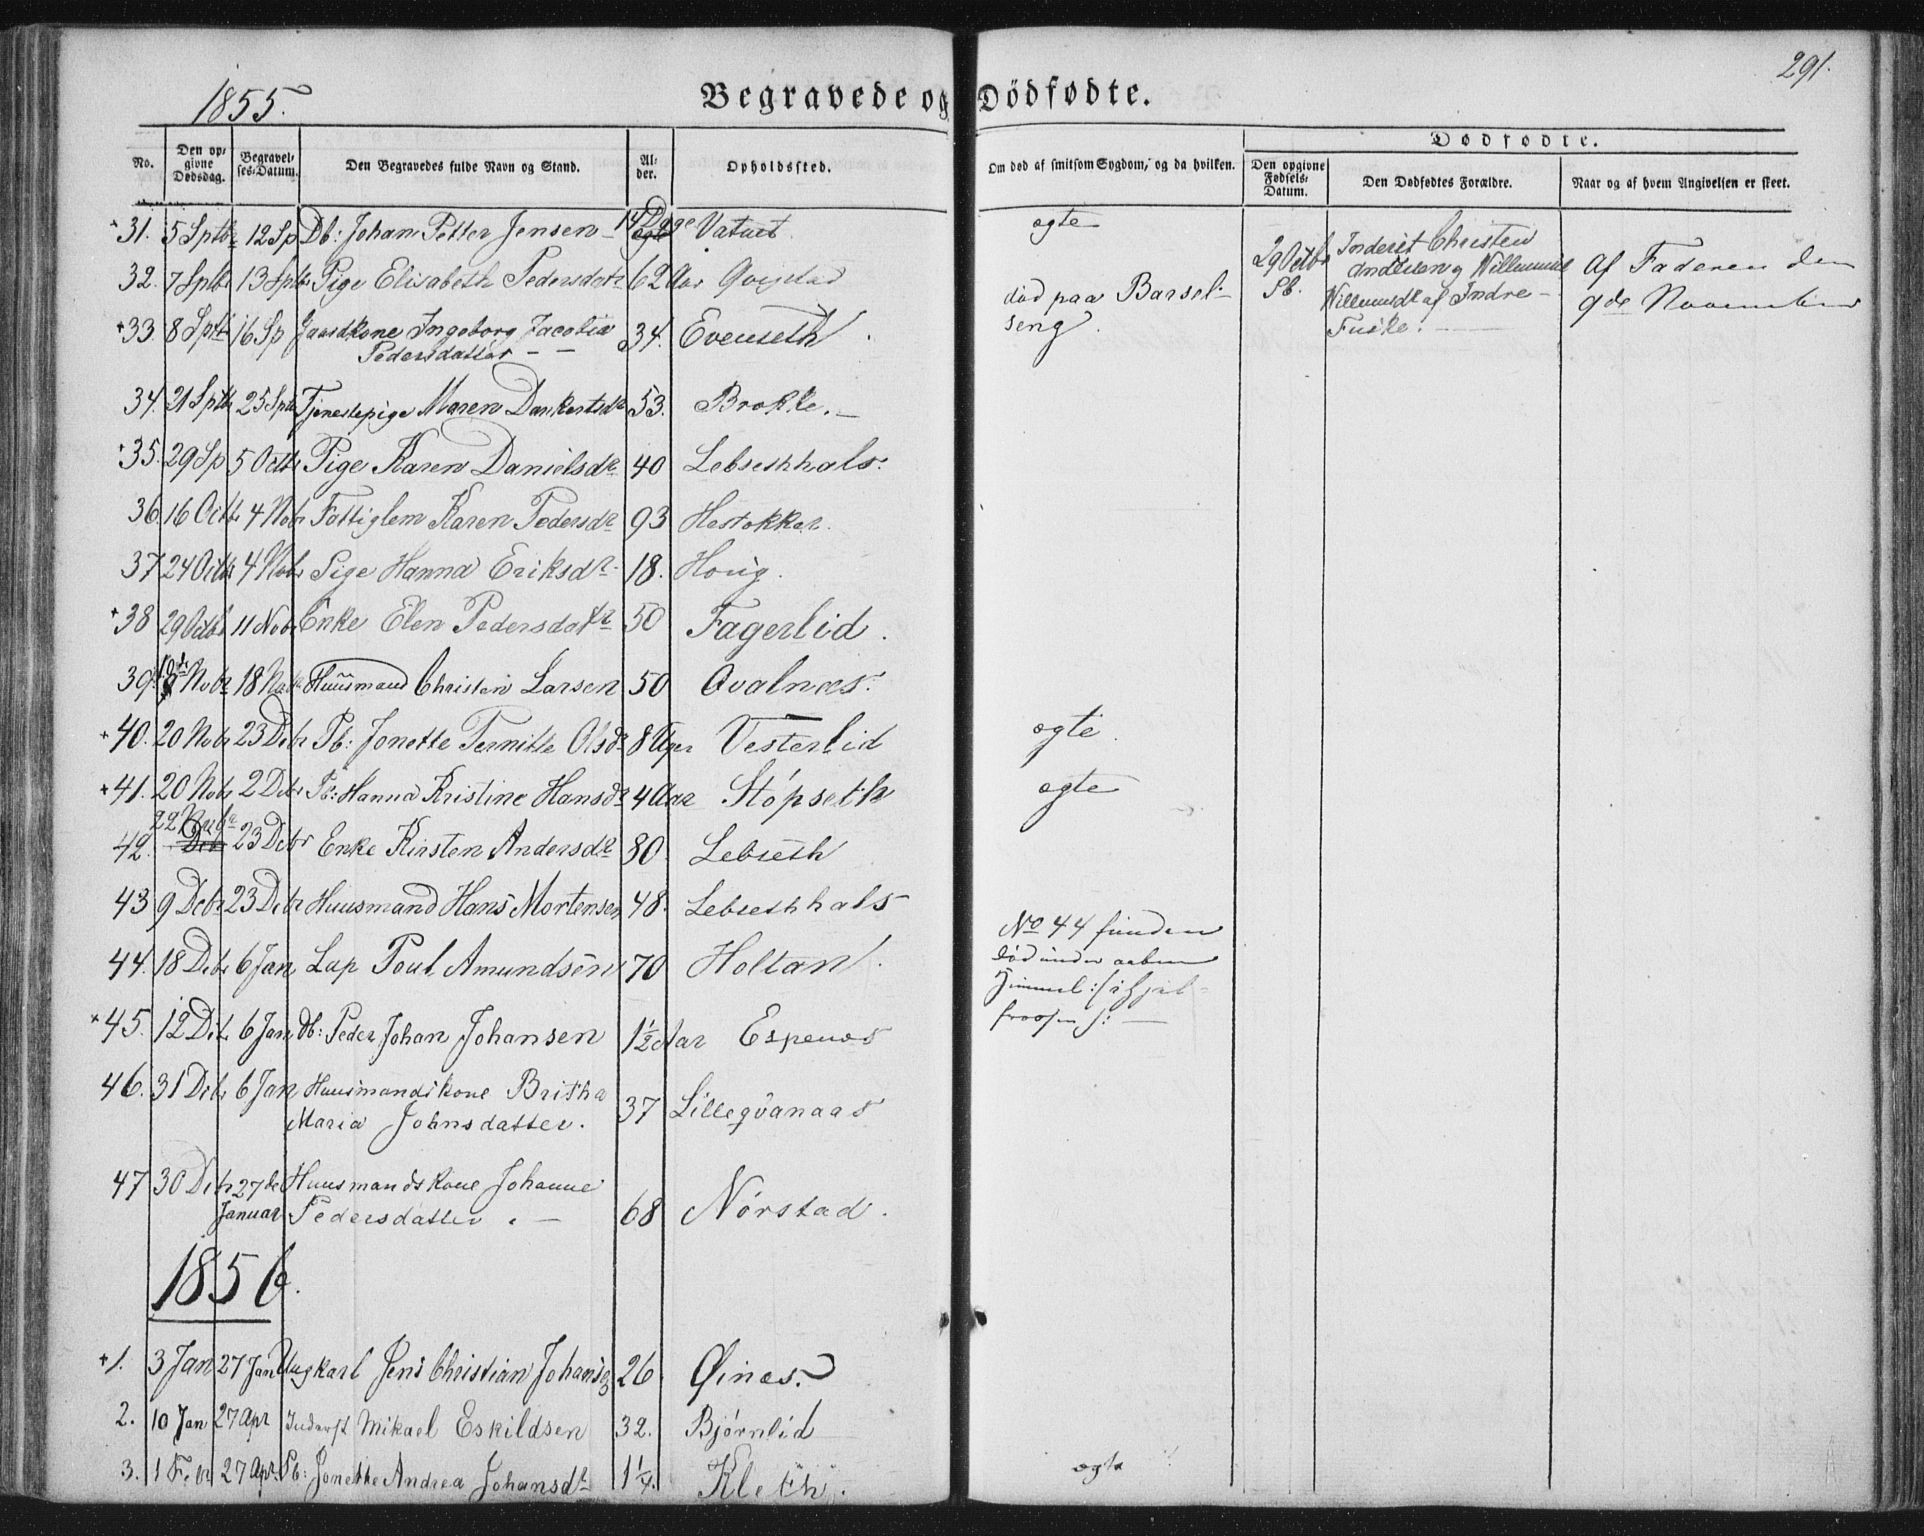 291.
1855.
Begravede og Dödfødte.
No.
Den opgivne Dødsdag.
Begravelses-Datum.
Den Begravedes fulde Navn og Stand.
Alder.
Opholdssted.
Om død af smitsom Sygdom, og da hvilken.
Dødfødte.
Den opgivne Fødsels-Datum.
Den Dødfødtes Forældre.
Naar og af hvem Angivelsen er skeet.
+31. 5 Sptbr 12 Sp Db: Johan Petter Jensen 14 Dage Vatnet. ogte
32. 7 Spbr 13 Sptbr Pige Elisabeth Pedersdatr 62 Aar
+33. 8 Sptb 16 Sp Gaardkone Ingeborg Jacobia
Pedersdatter — — 34. Evenseth
død paa Barsel-
seng.
29 Octb
Pb.
Inderst Christen
Andersen og Willumine
Willumsdr af Indre
Fuske.
Af Faderen den
9de November
34. 21 Sptbr 25 Sptbr Tjenestepige Maren Dankertsdr 53. Brokke.
+35. 29 Sp 5 Octbr Pige Karen Danielsdr 40 Lebsethhals.
36. 16 Octbr 4 Nobr Fattiglem Karen Pedersdr 93 Hestokker.
37 24 Octbr 4 Nobr Pige Hanna Eriksdr 18. Houg.
+38 29 Octbr 11 Nobr Enke Elen Pedersdatr 50 Fagerlid.
39. Nobr 18 Nobr Huusmand Christen Larsen 50 Qvalnæs.
+40. 20 Nobr 23 Debr Pb: Jonette Pernitte Olsdr 8 Uger Vesterlid ogte
+41. 20 Nobr 2 Debr Pb: Hanna Kristine Hansdr 4 Aar Stópseth ogte
42. 22 Nobr Debr 23 Debr Enke Kirsten Andersdr 80. Lebseth
43 9 Debr 23 Debr Huusmand Hans Mortensen 48. Lebsethhals
44. 18 Debr 6 Jan Lap Poul Amundsen 70 Holtan.
No 44 funden
død under aaben
Himmel :/ ihjel-
frossen /: —
+45. 12 Debr 6 Jan db: Peder Johan Johansen 1½ Aar Espenes
46. 31 Debr 6 Jan Huusmandskone Britha
Maria Johnsdatter. 37 Lillegvanaas
47 30 Debr 27de Huusmandskone Johanne
Januar Pedersdatter. — 68 Nórstad.
1856.
+1. 3 Jan 27 Jan Ungkarl Jens Christian Johansen 26 Øines.
2. 10 Jan 27 Apr Inderst Mikael Eskildsen 32. Bjórnlid
3. 1 Febr 27 Apr. Pb: Jonette Andrea Johansdr 1¼. Kleth. ogte